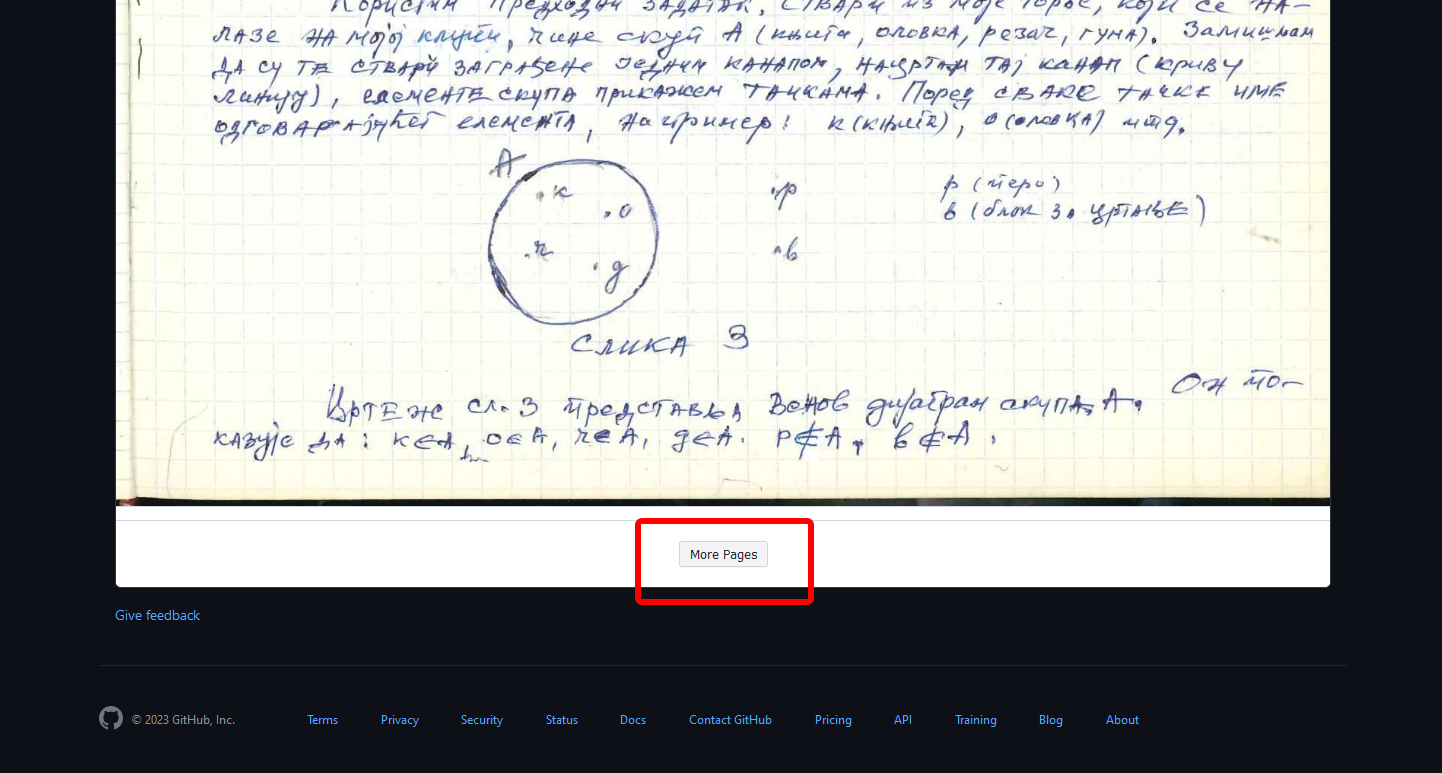 Користим предходни задатак. Ствари из моје торбе, које се на-
лазе на мојој клупи, чине скуп А (књига, оловка, резач, гума). Замишљам
да су те ствари заграђене једним канапом, нацртам тај канап (криву
линију), елементе скупа прикажем тачкама. Поред сваке тачке име
одговарајућег елемента, на пример: к(књига), о(оловка) итд.
А
к
р
р (перо)
о
в (блок за цртање)
ч
в
д
Слика 3
Цртеж сл. 3 представља Венов дијаграм скупа А. Он по-
казује да: к∈А, о∈А, ч∈А, д∈А. р∉А, в∉А.
More Pages
Give feedback
© 2023 GitHub, Inc. Terms Privacy Security Status Docs Contact GitHub Pricing API Training Blog About